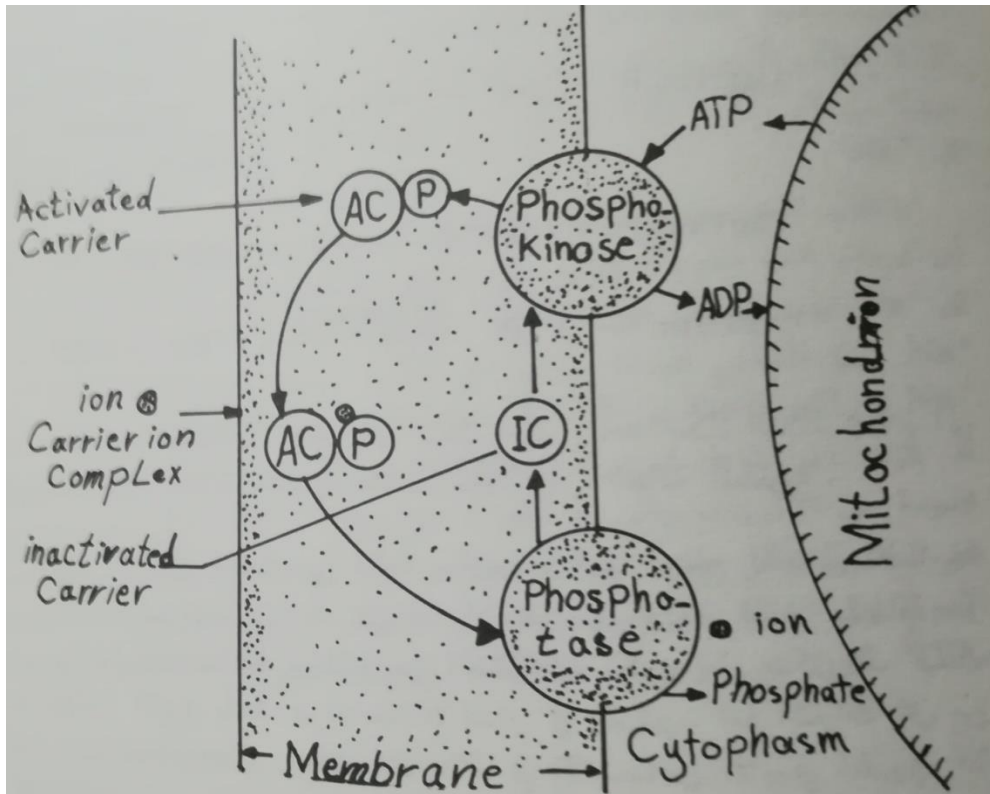 ATP
Activated
Carrier
AC
P
Phospho-
Kinase
ADP
Mitochondrion
ion
Carrier ion
Complex
AC
P
IC
inactivated
Carrier
Phospho-
tase
ion
Phosphate
Cytophasm
Membrane